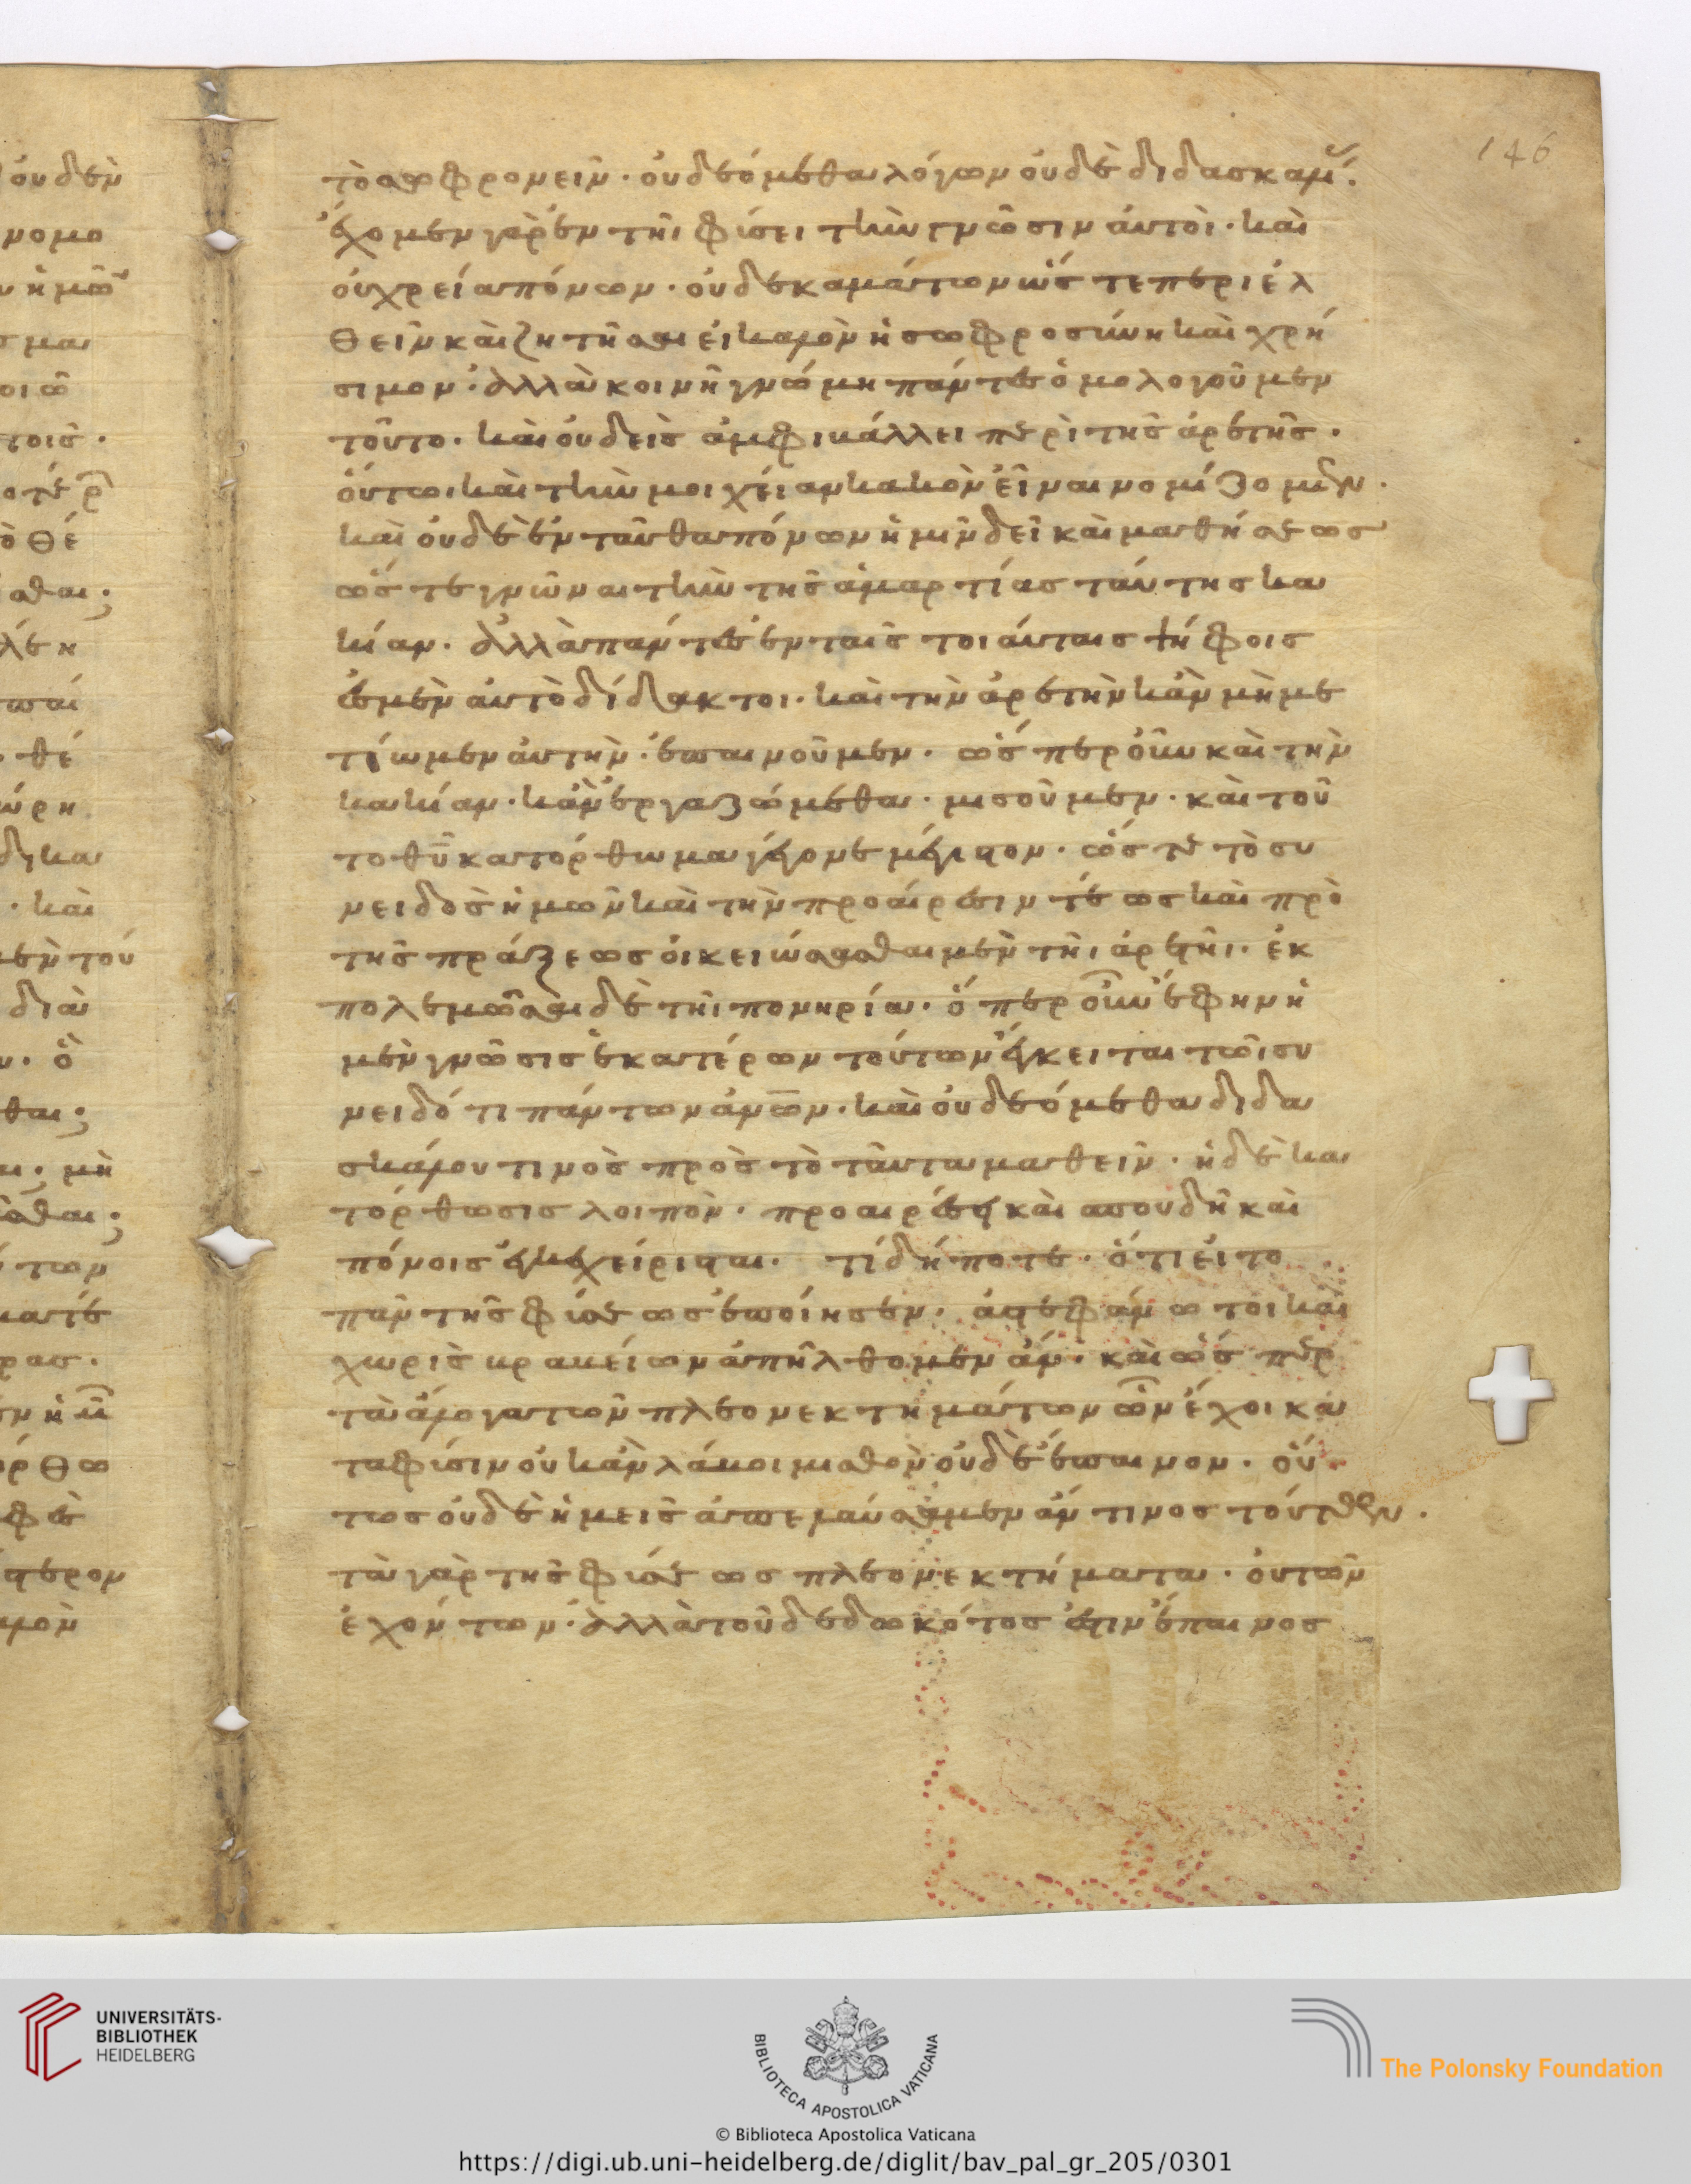 οὐδὲν
νομο
τοῖς.
θέ
καὶ
διὰ
μὴ
τὸ σωφρονεῖν. οὐ δεόμεθα λόγων οὐδὲ διδασκαλί.
ἔχομεν γὰρ ἐν τῆι φύσει τὴν γνῶσιν αὐτοὶ. καὶ
οὐ χρεία πόνων. οὐδὲ καμάτων ὥστε περιελ
θεῖν καὶ ζητῆσαι εἰ καλὸν ἡ σωφροσύνη καὶ χρή
σιμον. ἀλλὰ κοινῆ γνώμη πάντες ὁμολογοῦμεν
τοῦτο. καὶ οὐδεὶς ἀμφιβάλλει περὶ τῆς ἀρετῆς.
οὕτω καὶ τὴν μοιχείαν κακὸν εἶναι νομίζομεν.
καὶ οὐδὲ ἐνταῦθα πόνων ἡμῖν δεῖ καὶ μαθήσεως
ὥστε γνῶναι τὴν τῆς ἁμαρτίας ταύτης κα
κίαν. ἀλλὰ πάντες ἐν ταῖς τοιαύταις ψήφοις
ἐσμὲν αὐτοδίδακτοι. καὶ τὴν ἀρετὴν κἂν μὴ με
τίωμεν αὐτὴν. ἐπαινοῦμεν. ὥσπερ οὖν καὶ τὴν
κακίαν. κἂν ἐργαζώμεθα. μισοῦμεν. καὶ τοῦ
το θῦ κατόρθωμα γέγονε μέγιστον. ὥστε τὸ συ
νειδὸς ἡμῶν καὶ τὴν προαίρεσιν τέως καὶ πρὸ
τῆς πράξεως οἰκειώσασθαι μὲν τῆι ἀρετῆι. ἐκ
πολεμῶσαι δὲ τῆι πονηρία. ὅπερ οὖν ἔφην ἡ
μὲν γνῶσις ἑκατέρων τούτων ἔγκειται τῶι συ
νειδότι πάντων ἀνῶν. καὶ οὐ δεόμεθα διδα
σκάλου τινὸς πρὸς τὸ ταῦτα μαθεῖν. ἡ δὲ κα
τόρθωσις λοιπὸν. προαιρέσει καὶ σπουδῆ καὶ
πόνοις ἐγκεχείρισται. τί δήποτε. ὅτι εἰ τὸ
πᾶν τῆς φύσεως ἐποίησεν. ἀστεφάνωτοι καὶ
χωρὶς βραβείων ἀπήλθομεν ἄν. καὶ ὥσπερ
τὰ ἄλογα τῶν πλεονεκτημάτων ὧν ἔχοι κα
τὰ φύσιν οὐκ ἂν λάβοι μισθὸν οὐδὲ ἔπαινον. οὕ
τως οὐδὲ ἡμεῖς ἀπελαύσαμεν ἄν τινος τούτων.
τὰ γὰρ τῆς φύσεως πλεονεκτήματα. οὐ τῶν
ἐχόντων. ἀλλὰ τοῦ δεδωκότος ἐστιν ἔπαινος
146
UNIVERSITÄTS-
BIBLIOTHEK
HEIDELBERG
BIBLIOTECA APOSTOLICA VATICANA
The Polonsky Foundation
© Biblioteca Apostolica Vaticana
https://digi.ub.uni-heidelberg.de/diglit/bav_pal_gr_205/0301